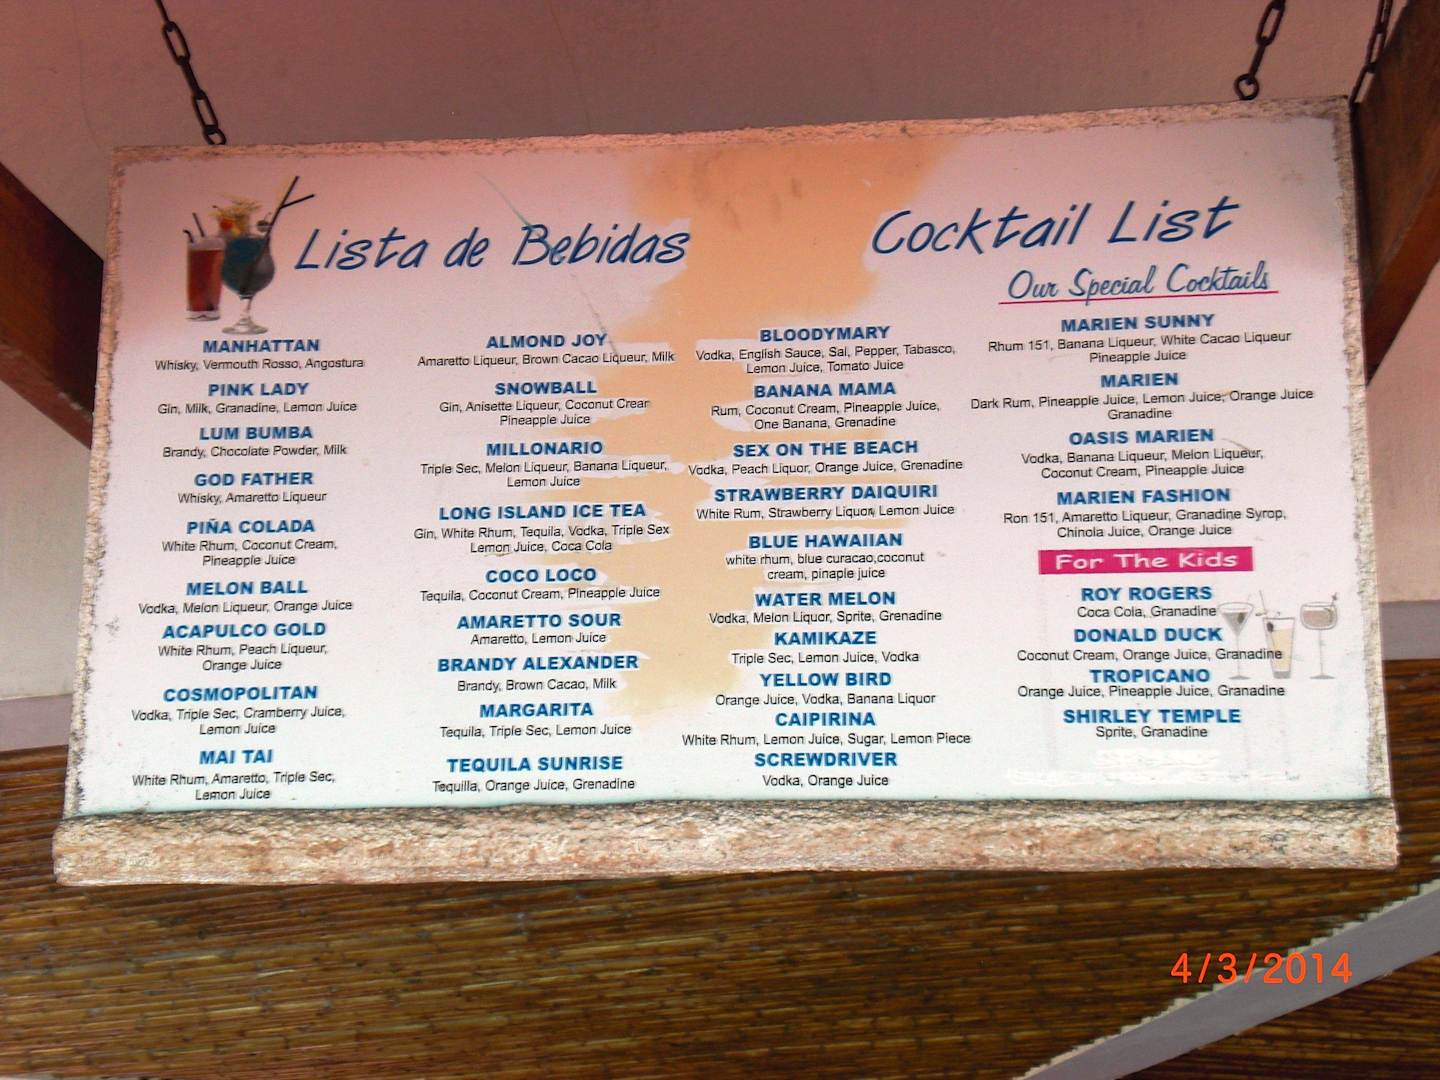 Lista de Bebidas
Cocktail List
Our Special Cocktails
MANHATTAN
Whisky, Vermouth Rosso, Angostura
PINK LADY
Gin, Milk, Granadine, Lemon Juice
LUM BUMBA
Brandy, Chocolate Powder, Milk
GOD FATHER
Whisky, Amaretto Liqueur
PIÑA COLADA
White Rhum, Coconut Cream,
Pineapple Juice
MELON BALL
Vodka, Melon Liqueur, Orange Juice
ACAPULCO GOLD
White Rhum, Peach Liqueur,
Orange Juice
COSMOPOLITAN
Vodka, Triple Sec, Cramberry Juice,
Lemon Juice
MAI TAI
White Rhum, Amaretto, Triple Sec,
Lemon Juice
ALMOND JOY
Amaretto Liqueur, Brown Cacao Liqueur, Milk
SNOWBALL
Gin, Anisette Liqueur, Coconut Crear
Pineapple Juice
MILLONARIO
Triple Sec, Melon Liqueur, Banana Liqueur,
Lemon Juice
LONG ISLAND ICE TEA
Gin, White Rhum, Tequila, Vodka, Triple Sex
Lemon Juice, Coca Cola
COCO LOCO
Tequila, Coconut Cream, Pineapple Juice
AMARETTO SOUR
Amaretto, Lemon Juice
BRANDY ALEXANDER
Brandy, Brown Cacao, Milk
MARGARITA
Tequila, Triple Sec, Lemon Juice
TEQUILA SUNRISE
Tequilla, Orange Juice, Grenadine
BLOODYMARY
Vodka, English Sauce, Sal, Pepper, Tabasco,
Lemon Juice, Tomato Juice
BANANA MAMA
Rum, Coconut Cream, Pineapple Juice,
One Banana, Grenadine
SEX ON THE BEACH
Vodka, Peach Liquor, Orange Juice, Grenadine
STRAWBERRY DAIQUIRI
White Rum, Strawberry Liquor, Lemon Juice
BLUE HAWAIIAN
white rhum, blue curacao,coconut
cream, pinaple juice
WATER MELON
Vodka, Melon Liquor, Sprite, Grenadine
KAMIKAZE
Triple Sec, Lemon Juice, Vodka
YELLOW BIRD
Orange Juice, Vodka, Banana Liquor
CAIPIRINA
White Rhum, Lemon Juice, Sugar, Lemon Piece
SCREWDRIVER
Vodka, Orange Juice
MARIEN SUNNY
Rhum 151, Banana Liqueur, White Cacao Liqueur
Pineapple Juice
MARIEN
Dark Rum, Pineapple Juice, Lemon Juice, Orange Juice
Granadine
OASIS MARIEN
Vodka, Banana Liqueur, Melon Liqueur,
Coconut Cream, Pineapple Juice
MARIEN FASHION
Ron 151, Amaretto Liqueur, Granadine Syrop,
Chinola Juice, Orange Juice
For The Kids
ROY ROGERS
Coca Cola, Granadine
DONALD DUCK
Coconut Cream, Orange Juice, Granadine
TROPICANO
Orange Juice, Pineapple Juice, Granadine
SHIRLEY TEMPLE
Sprite, Granadine
4/3/2014